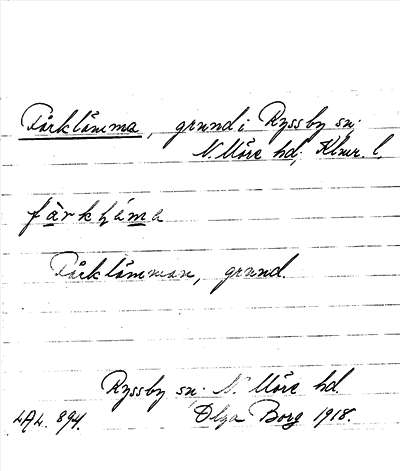 Fårklämma, grund i Ryssby sn.
N. Möre hd; Klmr. l.
Fårklämman, grund.
Ryssby sn. N. Möre hd.
LAL. 894. Olga Borg 1918.